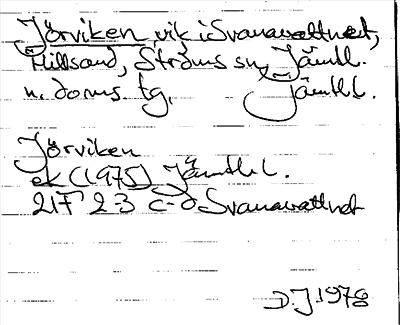 Jörviken vik i Svanavattnet,
Hillsand, Ströms sn Jämtl.
n. doms tg, Jämtl l.
Jörviken
ek (1975) Jämtl l.
21F 2-3 c-d Svanavattnet
D.J 1978